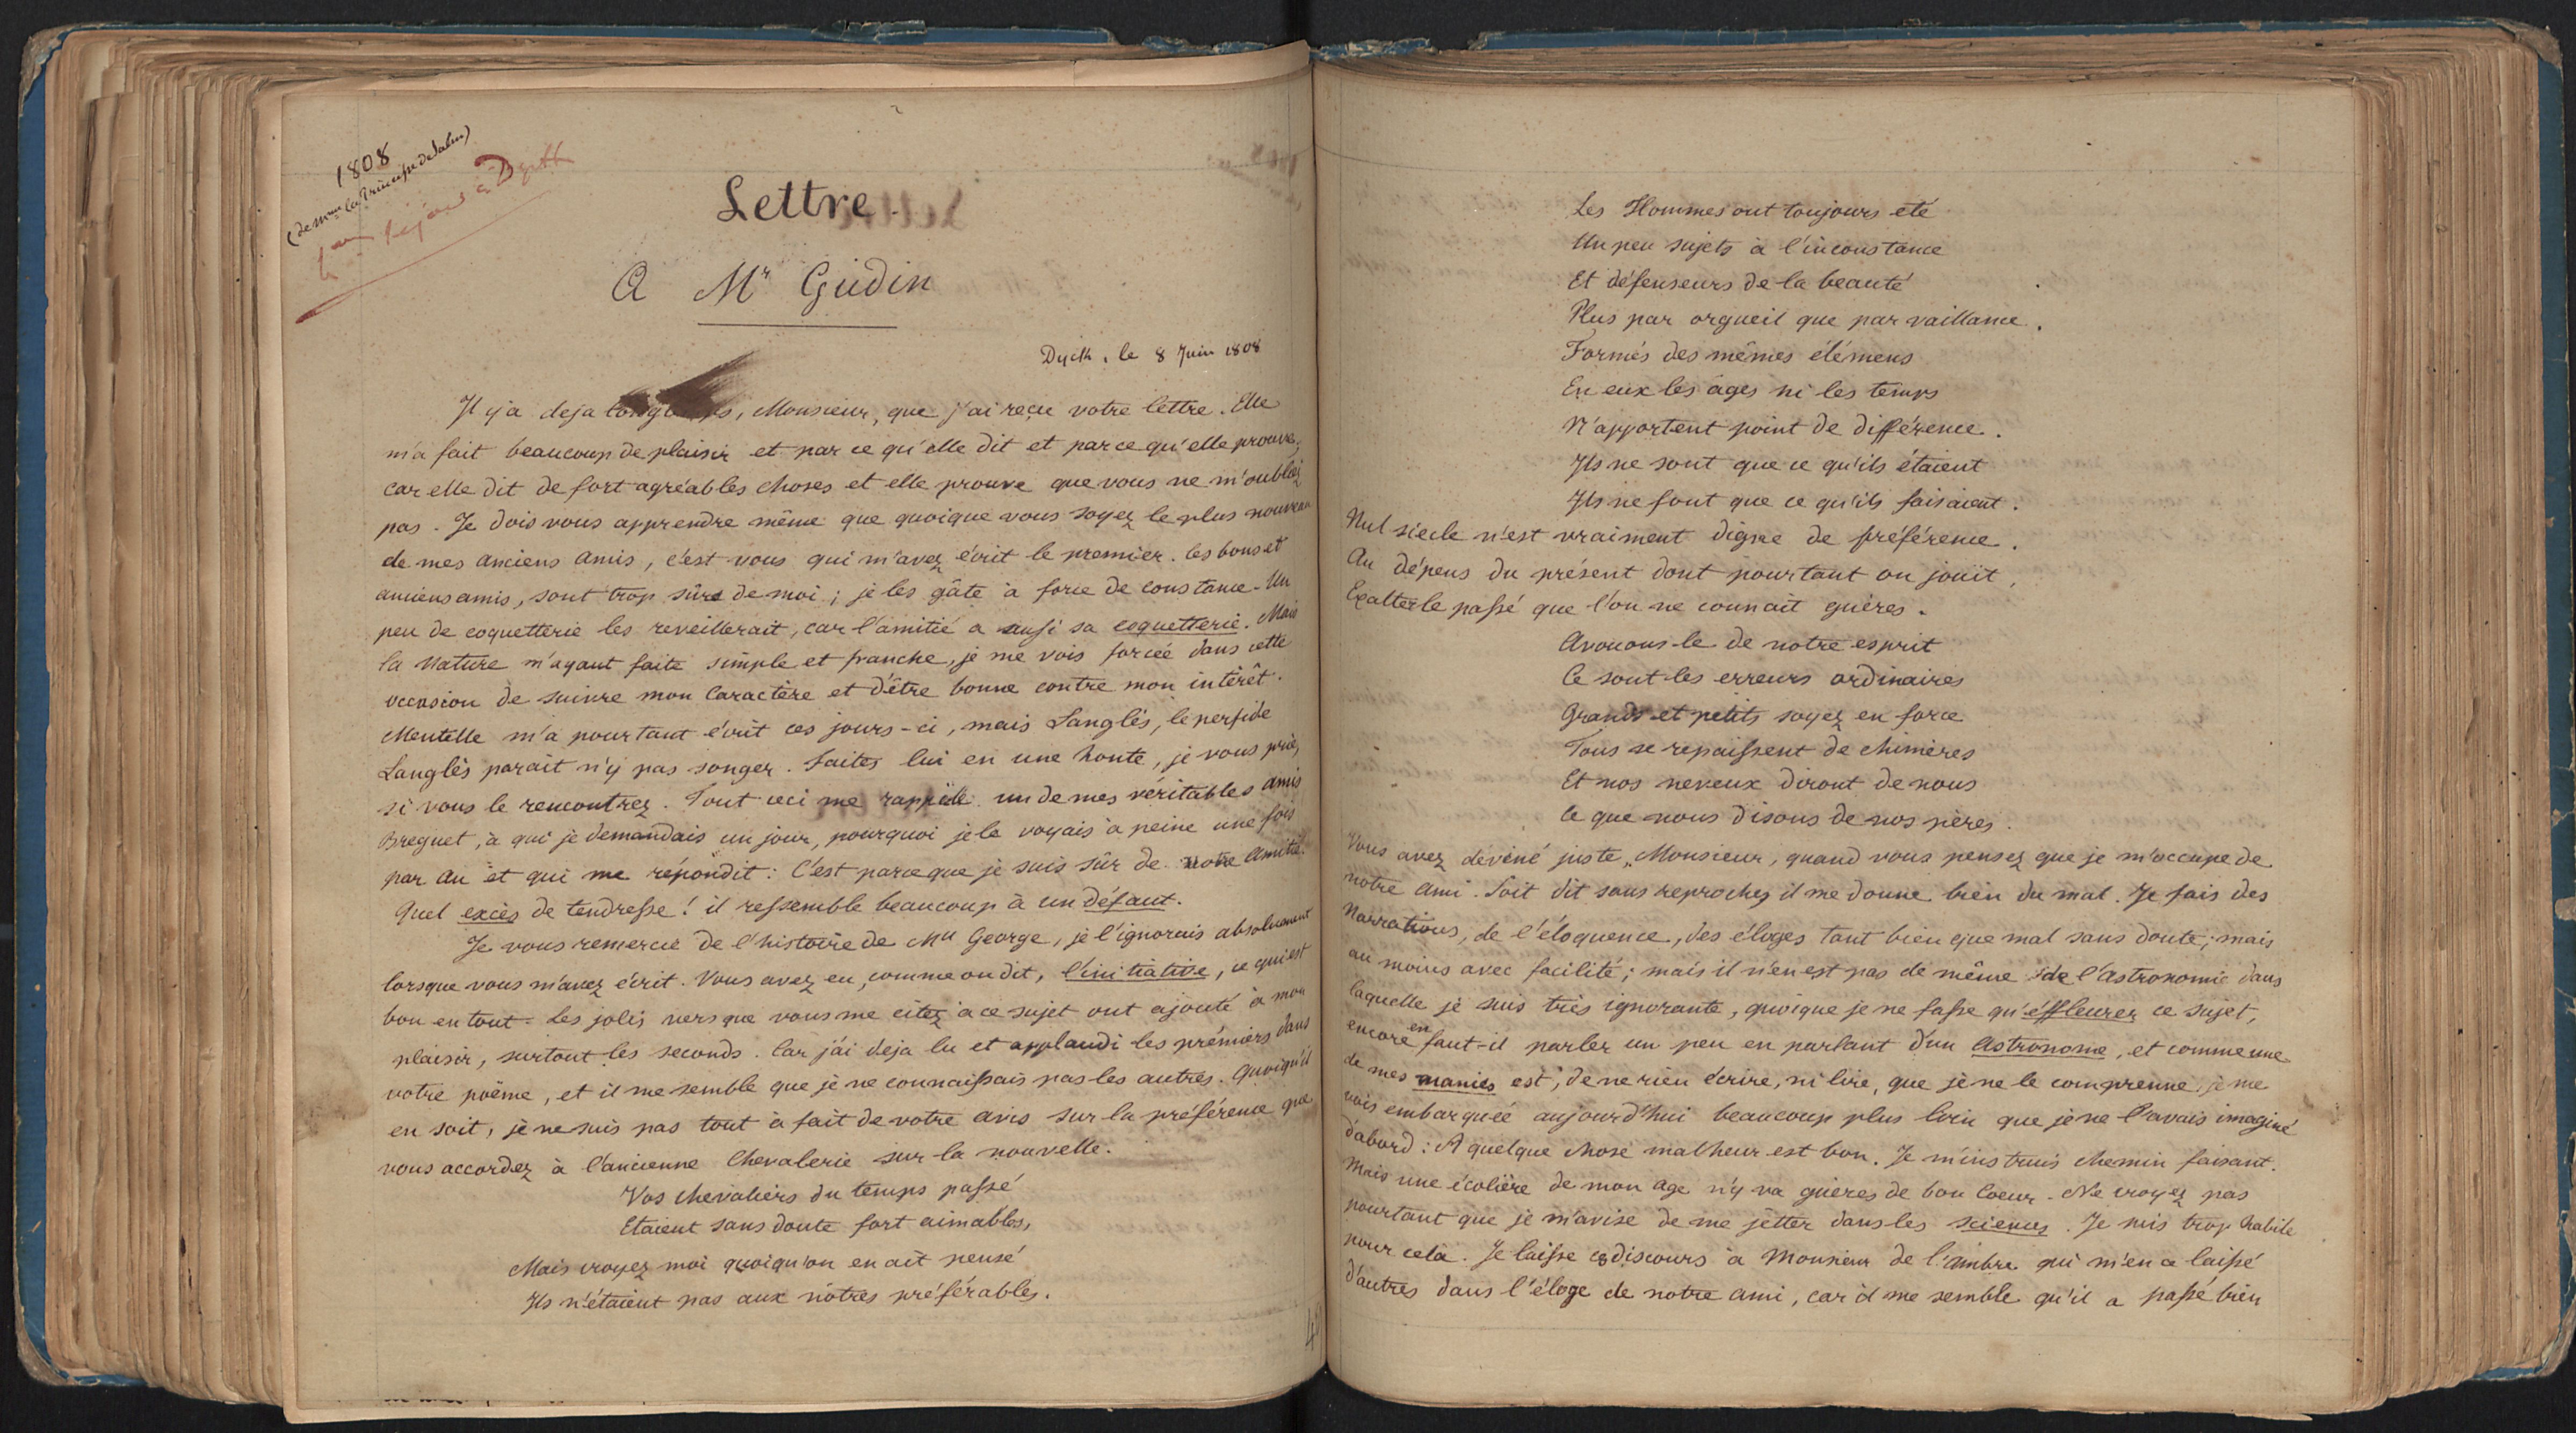 1808
(de Mme la Princesse de Salm)
séjour à Dyck
Lettre.
A Mr Gudin
Dyck, le 8 Juin 1808
Il y'a deja longtemps, Monsieur, que j'ai reçu votre lettre. Elle
m'a fait beaucoup de plaisir et par ce qu'elle dit et par ce qu'elle prouve,
car elle dit de fort agréables choses et elle prouve que vous ne m'oubliez
pas. Je dois vous apprendre même que quoique vous soyez le plus nouveau
de mes anciens amis, c'est vous qui m'avez écrit le premier. les bons et
anciens amis, sont trop sûrs de moi; je les gâte à force de constance. Un
peu de coquetterie les reveillerait, car l'amitié a aussi sa coquetterie. Mais
la Nature m'ayant faite simple et franche, je me vois forcée dans cette
occasion de suivre mon Caractère et d'être bonne contre mon intérêt.
Mentelle m'a pourtant écrit ces jours-ci, mais Langlès, le perfide
Langlès parait n'y pas songer. Faites lui en une honte, je vous prie,
si vous le rencontrez. Tout ceci me rappelle un de mes veritables amis
Breguet, à qui je demandais un jour, pourquoi je le voyais à peine une fois
par an et qui me répondit: C'est parceque je suis sûr de notre Amitié.
Quel excès de tendresse! il ressemble beaucoup à un défaut.
Je vous remercie de l'histoire de Mlle George, je l'ignorais absolument
lorsque vous m'avez écrit. Vous avez eu, comme on dit, l'initiative, ce qui est
bon en tout. Les jolis vers que vous me citez à ce sujet ont ajouté à mon
plaisir, surtout les seconds. Car j'ai deja lu et applaudi les prémiers dans
votre poëme, et il me semble que je ne connaissais pas les autres. Quoiqu'il
en soit, je ne suis pas tout à fait de votre avis sur la préférence que
vous accordez à l'ancienne Chevalerie sur la nouvelle.
Vos chevaliers du temps passé
Etaient sans doute fort aimables,
Mais croyez moi quoiqu'on en ait pensé
Ils n'étaient pas aux nôtres préférables.
Les Hommes ont toujours été
Un peu sujets à l'inconstance
Et défenseurs de la beauté
Plus par orgueil que par vaillance.
Formés des mêmes élémens
En eux les âges ni les temps
N'apportent point de différence.
Ils ne sont que ce qu'ils étaient
Ils ne font que ce qu'ils faisaient.
Nul siecle n'est vraiment digne de préférence.
Au dépens du présent dont pourtant on jouit,
Exalter le passé que l'on ne connait guères.
Avouons-le de notre esprit
Ce sont les erreurs ordinaires
Grands et petits soyez en force
Tous se repaissent de chimères
Et nos neveux diront de nous
Ce que nous disons de nos pères.
Vous avez déviné juste, Monsieur, quand vous pensez que je m'occupe de
notre ami. Soit dit sans reproches il me donne bien du mal. Je fais des
Narrations, de l'éloquence, des éloges tant bien que mal sans doute; mais
au moins avec facilité; mais il n'en est pas de même de l'astronomie dans
laquelle je suis très ignorante, quoique je ne fasse qu'éffleurer ce sujet,
encore en faut-il parler un peu en parlant d'un Astronome, et comme une
de mes manies est, de ne rien écrire, ni lire, que je ne le comprenne, je me
vois embarquée aujourd'hui beaucoup plus loin que je ne l'avais imaginé
d'abord: A quelque chose malheur est bon. Je m'instruis chemin faisant.
Mais une écolière de mon age n'y va guères de bon Coeur. Ne croyez pas
pourtant que je m'avise de me jetter dans les sciences. Je suis trop habile
pour cela. Je laisse ce discours à Monsieur de l'ambre qui m'en a laissé
d'autres dans l'éloge de notre ami, car il me semble qu'il a passé bien